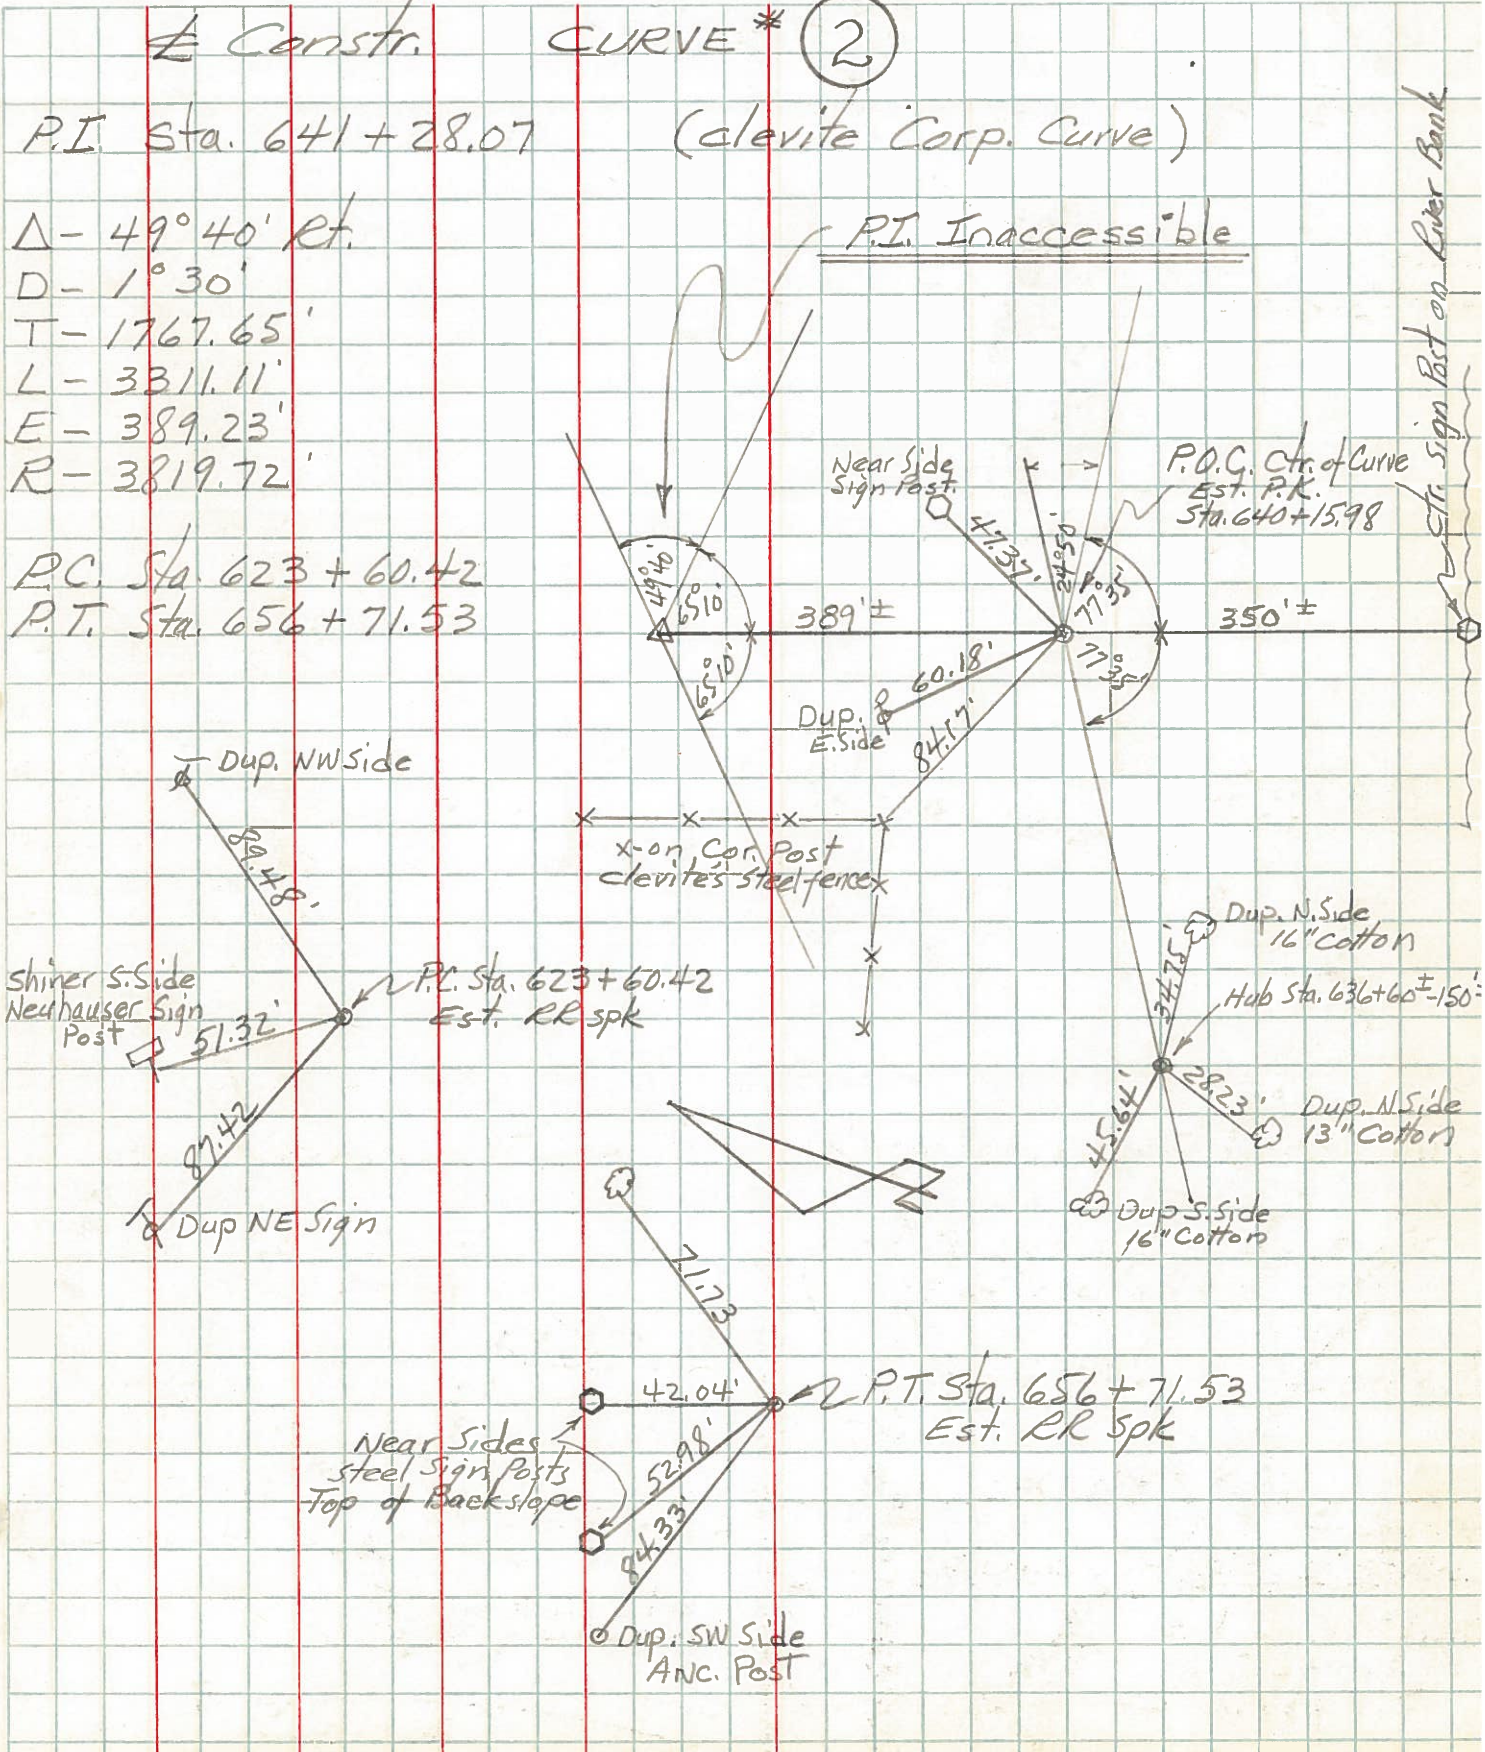 ℄ Constr. CURVE # 2
P.I. Sta. 641+28.07 (Clevite Corp. Curve)
Δ - 49°40' Rt.
D - 1°30'
T - 1767.65'
L - 3311.11'
E - 389.23'
R - 3819.72'
P.C. Sta. 623+60.42
P.T. Sta. 656+71.53
P.I. Inaccessible
Ctr. Sign Post on River Bank
Near Side
Sign Post.
P.O.C. Ctr. of Curve
Est. P.K.
Sta. 640+15.98
47.37'
24°50'
77°35'
77°35'
49°40'
65°10'
65°10'
389'±
350'±
60.18'
Dup.
E. Side
84.17'
x-on Cor. Post
Clevite's Steel fence
Dup. NW Side
89.48'
Shiner S. Side
Neuhauser Sign
Post
51.32'
P.C. Sta. 623+60.42
Est. RR spk
87.42
Dup NE Sign
Dup. N. Side
16" Cotton
34.75'
Hub Sta. 636+60±-150'±
28.23'
Dup. N Side
13" Cotton
45.64'
Dup S. Side
16" Cotton
71.73
42.04'
P.T. Sta. 656+71.53
Est. RR Spk
Near Sides
Steel Sign Posts
Top of Backslope
52.98'
84.33'
Dup. SW Side
Anc. Post